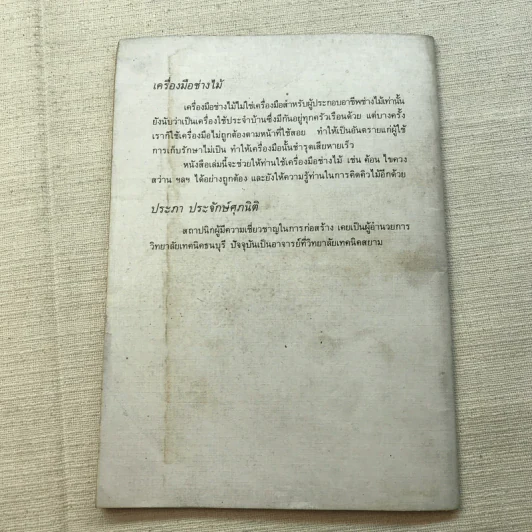 เครื่องมือช่างไม้
เครื่องมือช่างไม้ไม่ใช่เครื่องมือสำหรับผู้ประกอบอาชีพช่างไม้เท่านั้น
ยังนับว่าเป็นเครื่องใช้ประจำบ้านซึ่งมีกันอยู่ทุกครัวเรือนด้วย แต่บางครั้ง
เราก็ใช้เครื่องมือไม่ถูกต้องตามหน้าที่ใช้สอย ทำให้เป็นอันตรายแก่ผู้ใช้
การเก็บรักษาไม่เป็น ทำให้เครื่องมือนั้นชำรุดเสียหายเร็ว
หนังสือเล่มนี้จะช่วยให้ท่านใช้เครื่องมือช่างไม้ เช่น ค้อน ไขควง
สว่าน ฯลฯ ได้อย่างถูกต้อง และยังให้ความรู้ท่านในการคิดคิวไม้อีกด้วย
ประภา ประจักษ์ศุภนิติ
สถาปนิกผู้มีความเชี่ยวชาญในการก่อสร้าง เคยเป็นผู้อำนวยการ
วิทยาลัยเทคนิคธนบุรี ปัจจุบันเป็นอาจารย์ที่วิทยาลัยเทคนิคสยาม